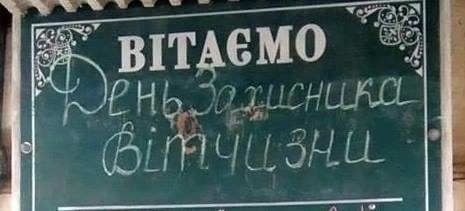 ВІТАЄМО
День Захисника
Вітчизни